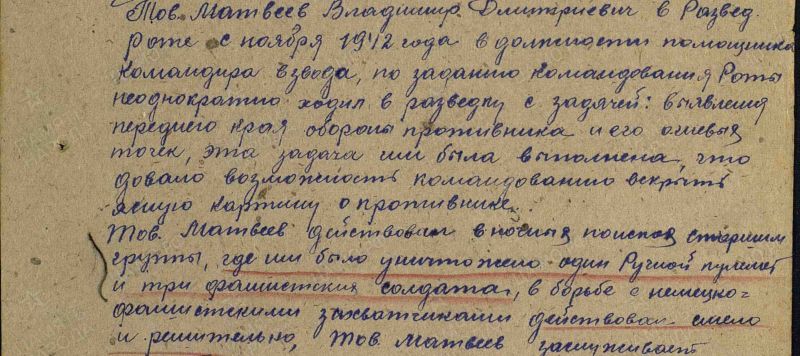 Тов. Матвеев Владимир Дмитриевич в Развед.
Роте с ноября 1942 года в должности помощника
командира взвода, по заданию командования Роты
неоднократно ходил в разведку с задачей: выявления
переднего края обороны противника и его огневых
точек, эта задача им была выполнена, что
довало возможность командованию вскрыть
ясную картину о противнике.
Тов. Матвеев действовал в ночных поисках старшим
группы, где им было уничтожено один Ручной пулемет
и три фашистских солдата, в борьбе с немецко-
фашистскими захватчиками действовал смело
и решительно, Тов. Матвеев заслуживает